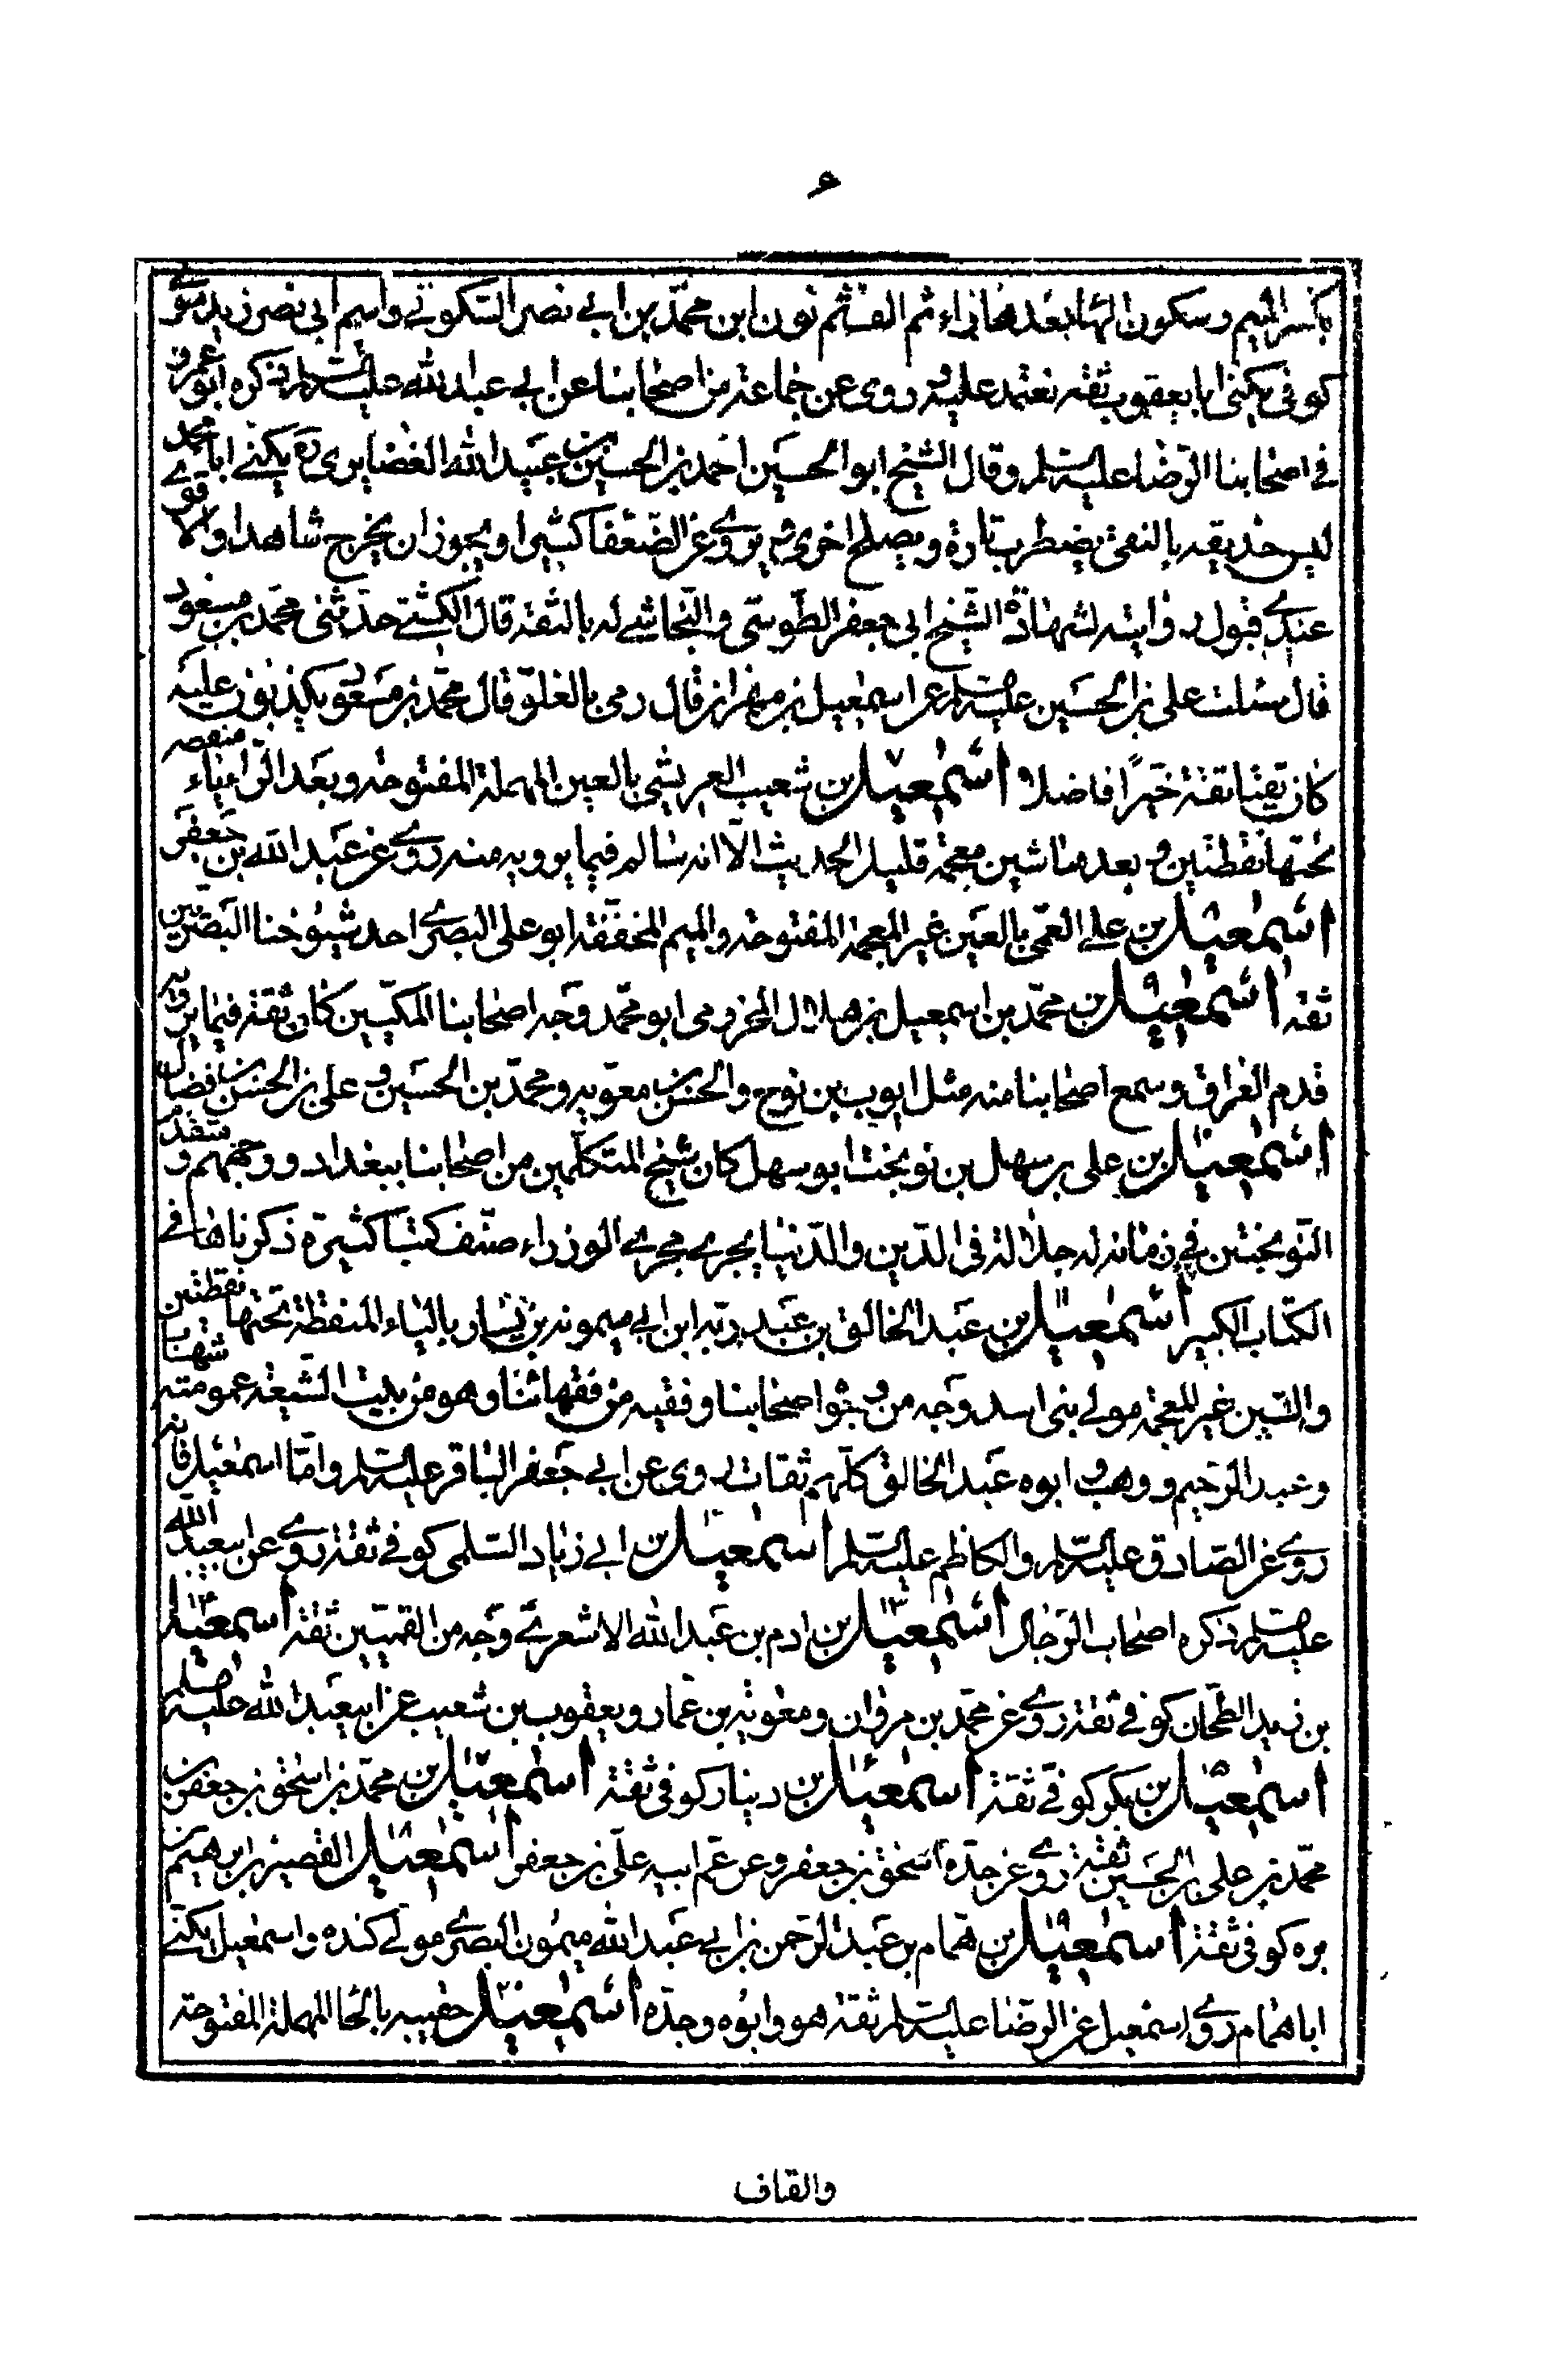 ع
بكسر الميم وسكون الهاء بعدها راء ثم الف ثم نون ابن محمد بن ابي نصر السكوني واسم ابي نصر زيد مولى
كوفي يكنى ابا يعقوب ثقة نعتمد عليه روى عن جماعة من اصحابنا عن ابي عبد الله عليه السلم ذكره ابو عمرو
في اصحابنا الرضا عليه السلم وقال الشيخ ابو الحسين احمد بن الحسين بن عبيد الله الغضايري ره يكنى ابا محمد
ليس حديثه بالنقى يضطرب تارة ويصلح اخرى يروى عن الضعفا كثيرا ويجوز ان يخرج شاهدا والاقوى
عندي قبول روايته لشهادة الشيخ ابي جعفر الطوسي والنجاشي له بالثقة قال الكشي حدثني محمد بن مسعود
قال سئلت علي بن الحسين عليه السلم عن اسمعيل بن مهران قال رمي بالغلو قال محمد بن مسعود يكذبون عليه
كان تقيا ثقة خيرا فاضلا اسمعيل بن شعيب العريشي بالعين المهملة المفتوحة وبعد الراء ياء منقطة
تحتها نقطتين وبعدها شين معجمة قليل الحديث الا انه سالم فيما يرويه منه روى عن عبد الله بن جعفر
اسمعيل بن علي العمي بالعين غير المعجمة المفتوحة والميم المخففة ابو علي البصري احد شيوخنا البصريين
ثقة اسمعيل بن محمد بن اسمعيل بن هلال المخزومي ابو محمد وجه اصحابنا المكيين كان ثقة فيما يرويه
قدم العراق وسمع اصحابنا منه مثل ايوب بن نوح والحسن بن معوية ومحمد بن الحسين وعلي بن الحسن بن فضال
اسمعيل بن علي بن سهل بن نوبخت ابو سهل كان شيخ المتكلمين من اصحابنا ببغداد ووجههم ومتقدم
النوبختين في زمانه له جلالة في الدين والدنيا يجرى مجرى الوزراء صنف كتبا كثيرة ذكرناها في
الكتاب الكبير اسمعيل بن عبد الخالق بن عبد ربه ابن ابي ميمونة بن يسار بالياء المنقطة تحتها نقطتين
والسين غير المعجمة مولى بني اسد وجه من وجوه اصحابنا وفقيه من فقهائنا وهو من بيت الشيعة عمومته شهاب
وعبد الرحيم ووهب وابوه عبد الخالق كلهم ثقات روى عن ابي جعفر الباقر عليه السلم واما اسمعيل فانه
روى عن الصادق عليه السلم والكاظم عليه السلم اسمعيل بن ابي زياد السلمي كوفي ثقة روى عن ابيعبد الله
عليه السلم ذكره اصحاب الرجال اسمعيل بن ادم بن عبد الله الاشعري وجه من القميين ثقة اسمعيل
بن زيد الطحان كوفي ثقة روى عن محمد بن مروان ومعوية بن عمار ويعقوب بن شعيب عن ابيعبد الله عليه السلم
اسمعيل بن بكر كوفي ثقة اسمعيل بن دينار كوفي ثقة اسمعيل بن محمد بن اسحق بن جعفر بن
محمد بن علي بن الحسين ثقة روى عن جده اسحق بن جعفر وعن عم ابيه علي بن جعفر اسمعيل القصير بن ابرهيم بن
بره كوفي ثقة اسمعيل بن همام بن عبد الرحمن بن ابي عبد الله ميمون البصري مولى كنده واسمعيل يكنى
ابا همام روى اسمعيل عن الرضا عليه السلم ثقة هو وابوه وجده اسمعيل حقيبه بالحا المهملة المفتوحة
والقاف